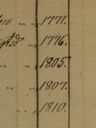 1771.
1776.
1805.
1807.
1810.